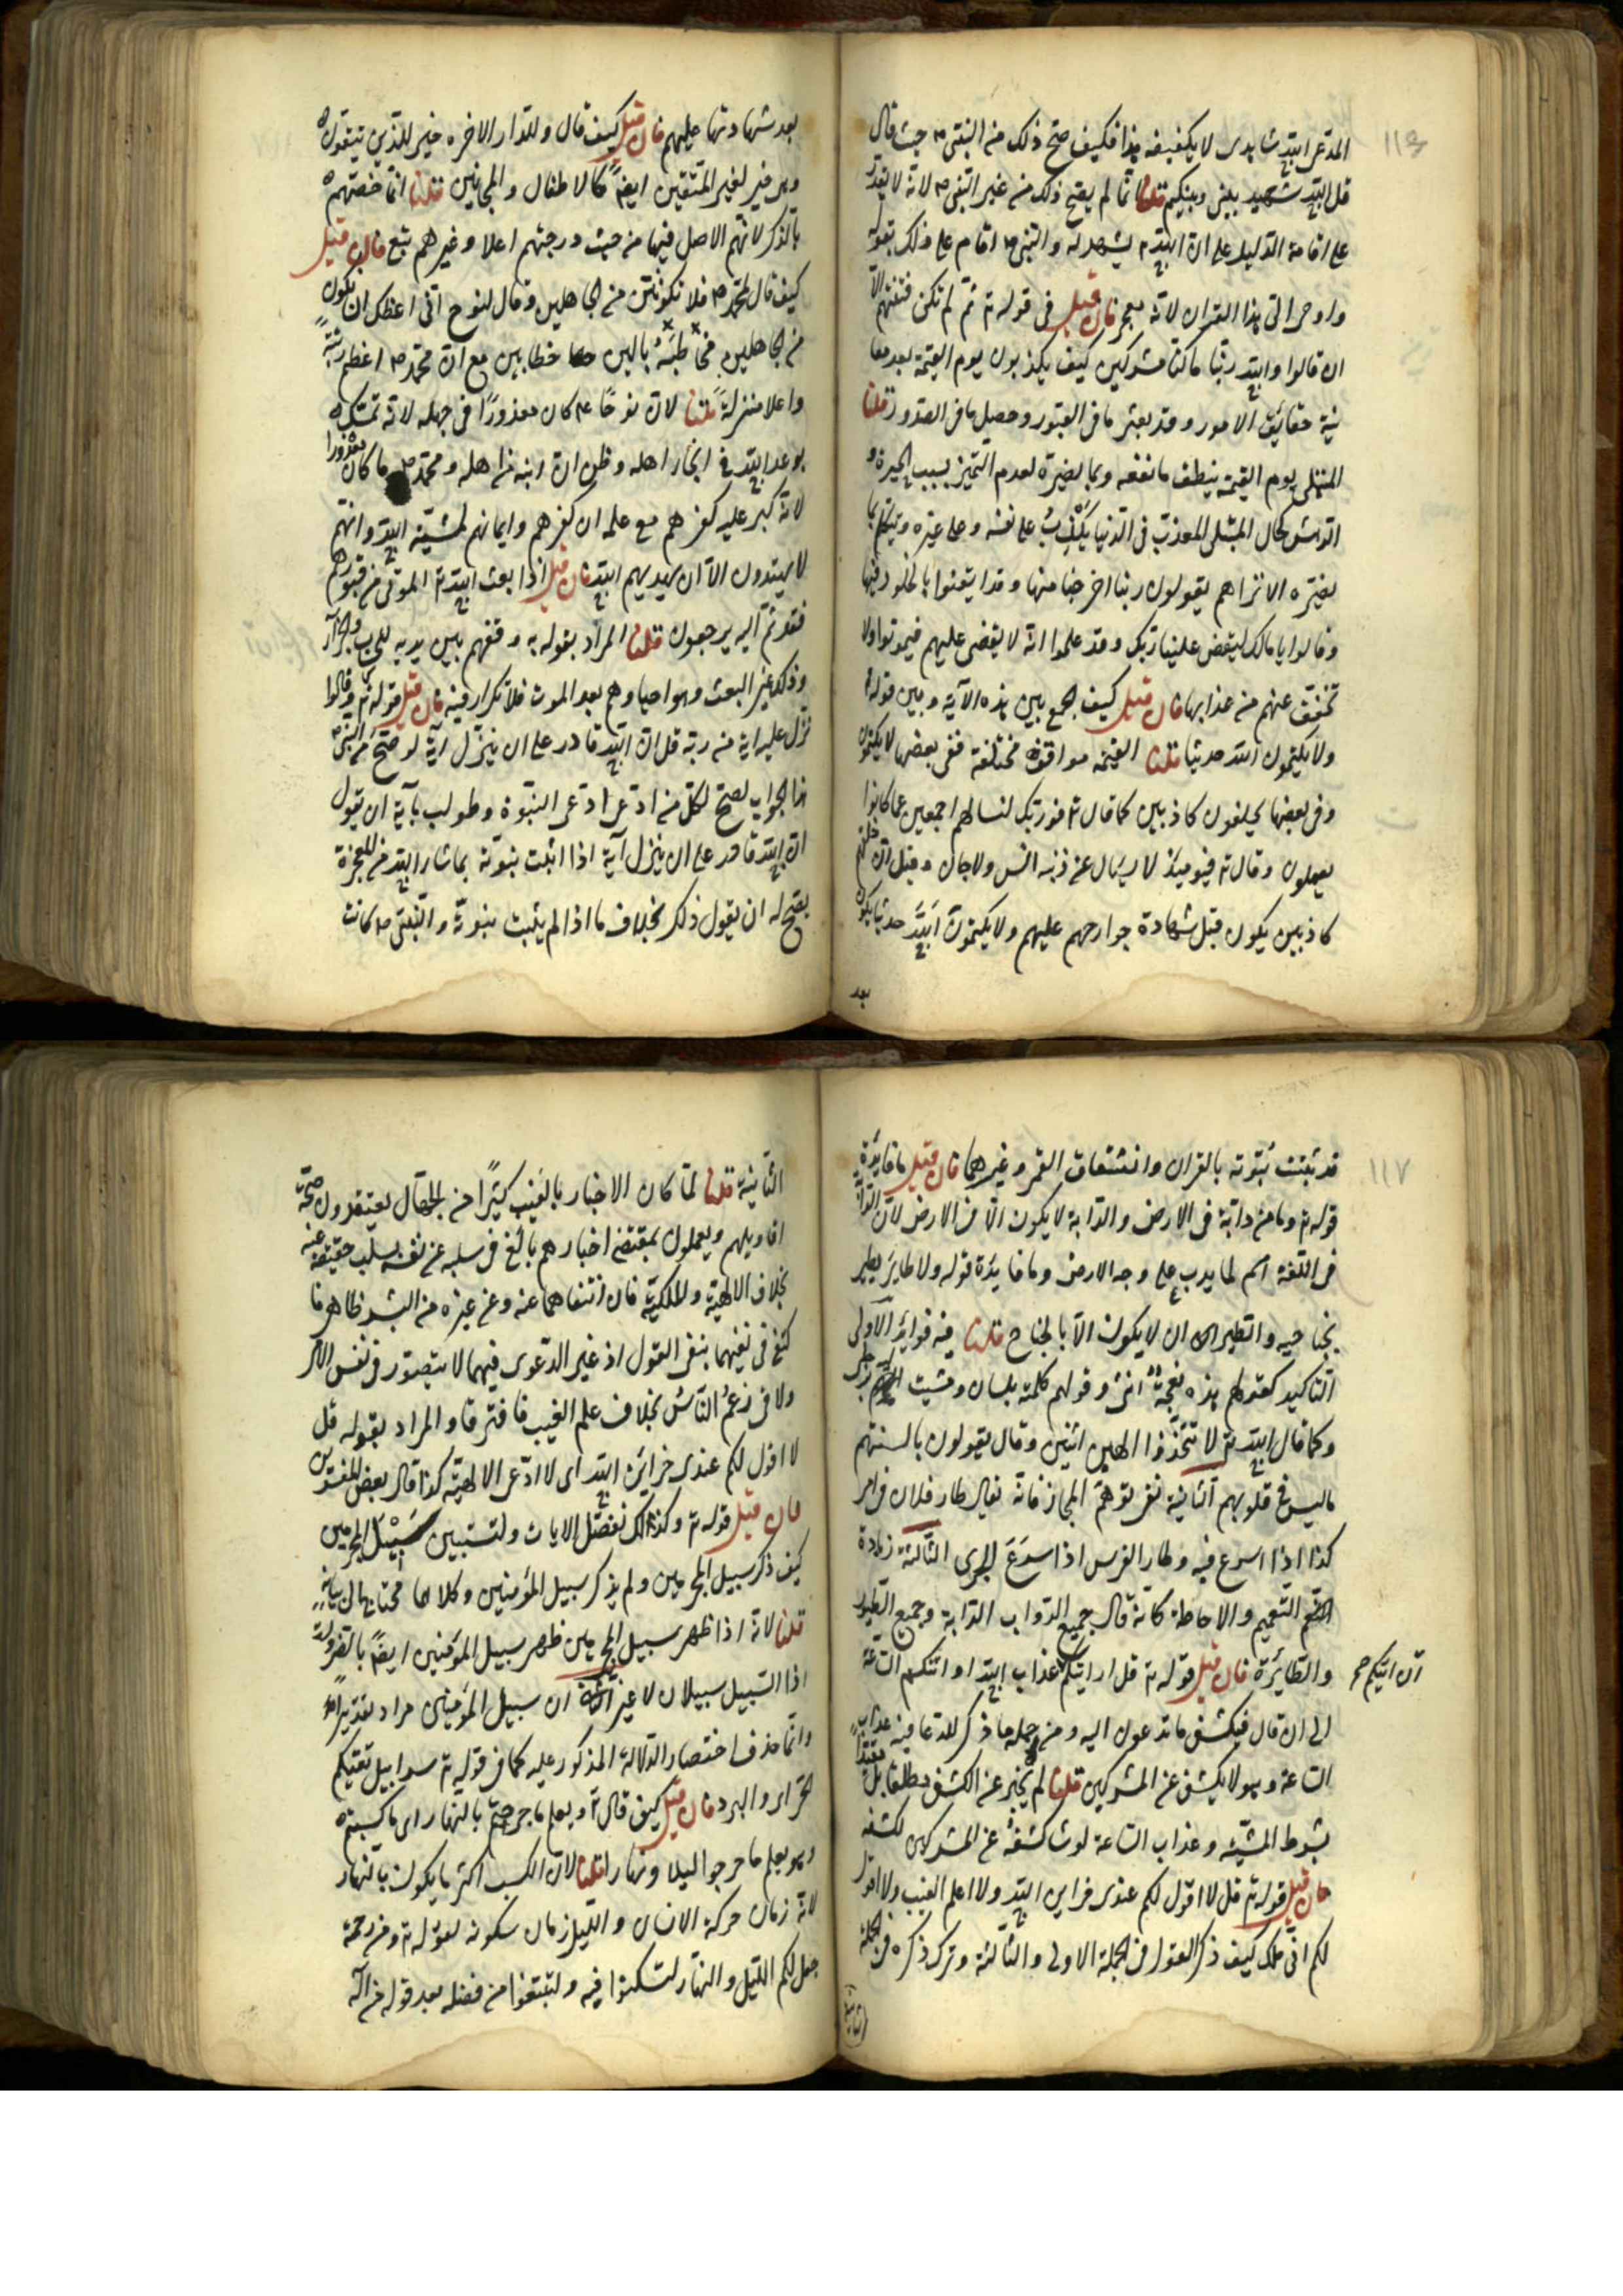 ١١٦
المدعى الله شاهدى لا يكفيه هذا فكيف صح ذلك من النبى ص حيث قال
قل الله شهيد بينى وبينكم قلنا انما لم يصح ذلك من غير النبى ص لانه لا يقدر
على اقامة الدليل على ان الله تع يشهد له والنبى ص اقام على ذلك بقوله
واوحى الى هذا القران لانه معجز فان قيل فى قوله تع ثم لم تكن فتنتهم الا
ان قالوا والله ربنا ما كنا مشركين كيف يكذبون يوم القيمة بعد معا
ينة حقائق الامور وقد بعثر ما فى القبور وحصل ما فى الصدور قلنا
المبتلى يوم القيمة ينطق ما نفعه وبما يضره لعدم التميز بسبب الحيرة و
الدهش كحال المبتلى المعذب فى الدنيا يكذب على نفسه وعلى غيره ويتكلم بما
يضره الا تراهم يقولون ربنا اخرجنا منها وقد ايقنوا بالخلود فيها
وقالوا يا مالك ليقض علينا ربك وقد علموا انه لا يقضى عليهم فيموتوا ولا
تخفف عنهم من عذابها فان قيل كيف الجمع بين هذه الآية وبين قوله
ولا يكتمون الله حديثا قلنا القيمة مواقف مختلفة ففى بعضها لا يكتمون
وفى بعضها يحلفون كاذبين كما قال تع فوربك لنسالهم اجمعين عما كانوا
يعملون وقال تع فيومئذ لا يسال عن ذنبه انس ولا جان وقيل ان حلفهم
كاذبين يكون قبل شهادة جوارحهم عليهم ولا يكتمون الله حديثا يكون
بعد
بعد شهادتها عليهم فان قيل كيف قال وللدار الاخرة خير للذين يتقون
وهى خير لغير المتقين ايضا كالاطفال والمجانين قلنا انما خصهم
بالذكر لانهم الاصل فيها من حيث درجتهم اعلا وغيرهم تبع فان قيل
كيف قال لمحمد ص فلا تكونن من الجاهلين وقال لنوح انى اعظك ان تكون
من الجاهلين فخاطبه بالين خطابين مع ان محمد ص اعظم رتبة
واعلا منزلة قلنا لان نوحا ع كان معذورا فى جهله لانه تمسك
بوعد الله فى انجاز اهله وظن ان ابنه من اهله ومحمد ص ما كان معذورا
لانه كبر عليه كفرهم مع علمه ان كفرهم وايمانهم لمشية الله وانهم
لا يهتدون الا ان يهديهم الله فان قيل اذا بعث الله تع الموتى من قبورهم
فقد ثم اليه يرجعون قلنا المراد بقوله به وقفهم بين يديه للحساب والجزآء
وذلك غير البعث وهو احياوهم بعد الموت فلا تكرار فيه فان قيل قوله تع وقالوا
نزل عليه اية من ربه قل ان الله قادر على ان ينزل آية لو صح من النبى
هذا الجواب لصح لكل من ادعى ادعى النبوة وطولب بآية ان يقول
ان الله قادر على ان ينزل آية اذا اثبت نبوته بما شاء الله من المعجزة
يصح له ان يقول ذلك بخلاف ما اذا لم يثبت نبوته والنبى ص كانت
١١٧
قد ثبتت نبوته بالقران وانشقاق القمر وغيرهما فان قيل ما فائدة
قوله تع وما من دابة فى الارض والدابة لا يكون الا فى الارض لان الدابة
فى اللغة اسم لما يدب على وجه الارض وما فايدة قوله ولا طاير يطير
بجناحيه والطيران لا يكون الا بالجناح قلنا فيه فوايد الاولى
التاكيد كقولهم هذه نعجة انثى وقولهم كلمته بلسان ومشيت برجلى
وكما قال الله تع لا تتخذوا الهين اثنين وقال يقولون بالسنتهم
ما ليس فى قلوبهم الثانية نفى توهم المجاز فانه يقال طار فلان فى امر
كذا اذا اسرع فيه وطار الفرس اذا اسرع الجرى الثالثة زيادة
التعميم والاحاطة كانه قال جميع الدواب الدابة وجميع الطيور
والطائرة فان قيل قوله تع قل ارايتكم عذاب الله او اتتكم الساعة
ان اتيكم صح
الى ان قال فيكشف ما تدعون اليه ومن جملة ما ذكر للدعا فيه عذاب
الساعة وهو لا يكشف عن المشركين قلنا لم يخبر عن الكشف مطلقا بل مقيدا
بشرط المشية وعذاب الساعة لو شا كشفه عن المشركين لكشفه
فان قيل قوله تع قل لا اقول لكم عندى خزاين الله ولا اعلم الغيب ولا اقول
لكم انى ملك كيف ذكر القول فى الجملة الاولى والثالثة وترك ذكره فى الجملة
الثانية
الثانية قلنا لما كان الاخبار بالغيب كثيرا من الجهال يعتقدون صحة
اقاويلهم ويعملون بمقتضى اخبارهم بالغ فى سلبه عن نفسه بسلب حقيقته عنه
بخلاف الالهية والملكية فان انتفاهما عنه وعن غيره من البشر ظاهر فا
كتفى فى نفيهما بنفى القول اذ غير الدعوى فيهما لا يتصور فى نفس الامر
ولا فى زعم الناس بخلاف علم الغيب فافترقا والمراد بقوله قل
لا اقول لكم عندى خزاين الله اى لا ادعى الالهية كذا قال بعض المفسرين
فان قيل قوله تع وكذلك نفصل الايات ولتستبين سبيل المجرمين
كيف ذكر سبيل المجرمين ولم يذكر سبيل المؤمنين وكلاهما محتاج الى بيانه
قلنا لانه اذا ظهر سبيل المجرمين ظهر سبيل المؤمنين ايضا بالضرورة
اذا السبيل سبيلان لا غير الثانى ان سبيل المؤمنين مراد تقديرا
وانما حذف اختصار الدلالة المذكور عليه كما فى قوله تع سرابيل تقيكم
الحر اى والبرد فان قيل كيف قال تع ويعلم ما جرحتم بالنهار اى ما كسبتم
وهو يعلم ما جرحوا ليلا ونهارا قلنا لان الكسب اكثر ما يكون بالنهار
لانه زمان حركة الانسان والليل زمان سكونه لقوله تع ومن رحمته
جعل لكم الليل والنهار لتسكنوا فيه ولتبتغوا من فضله بعد قوله من اله